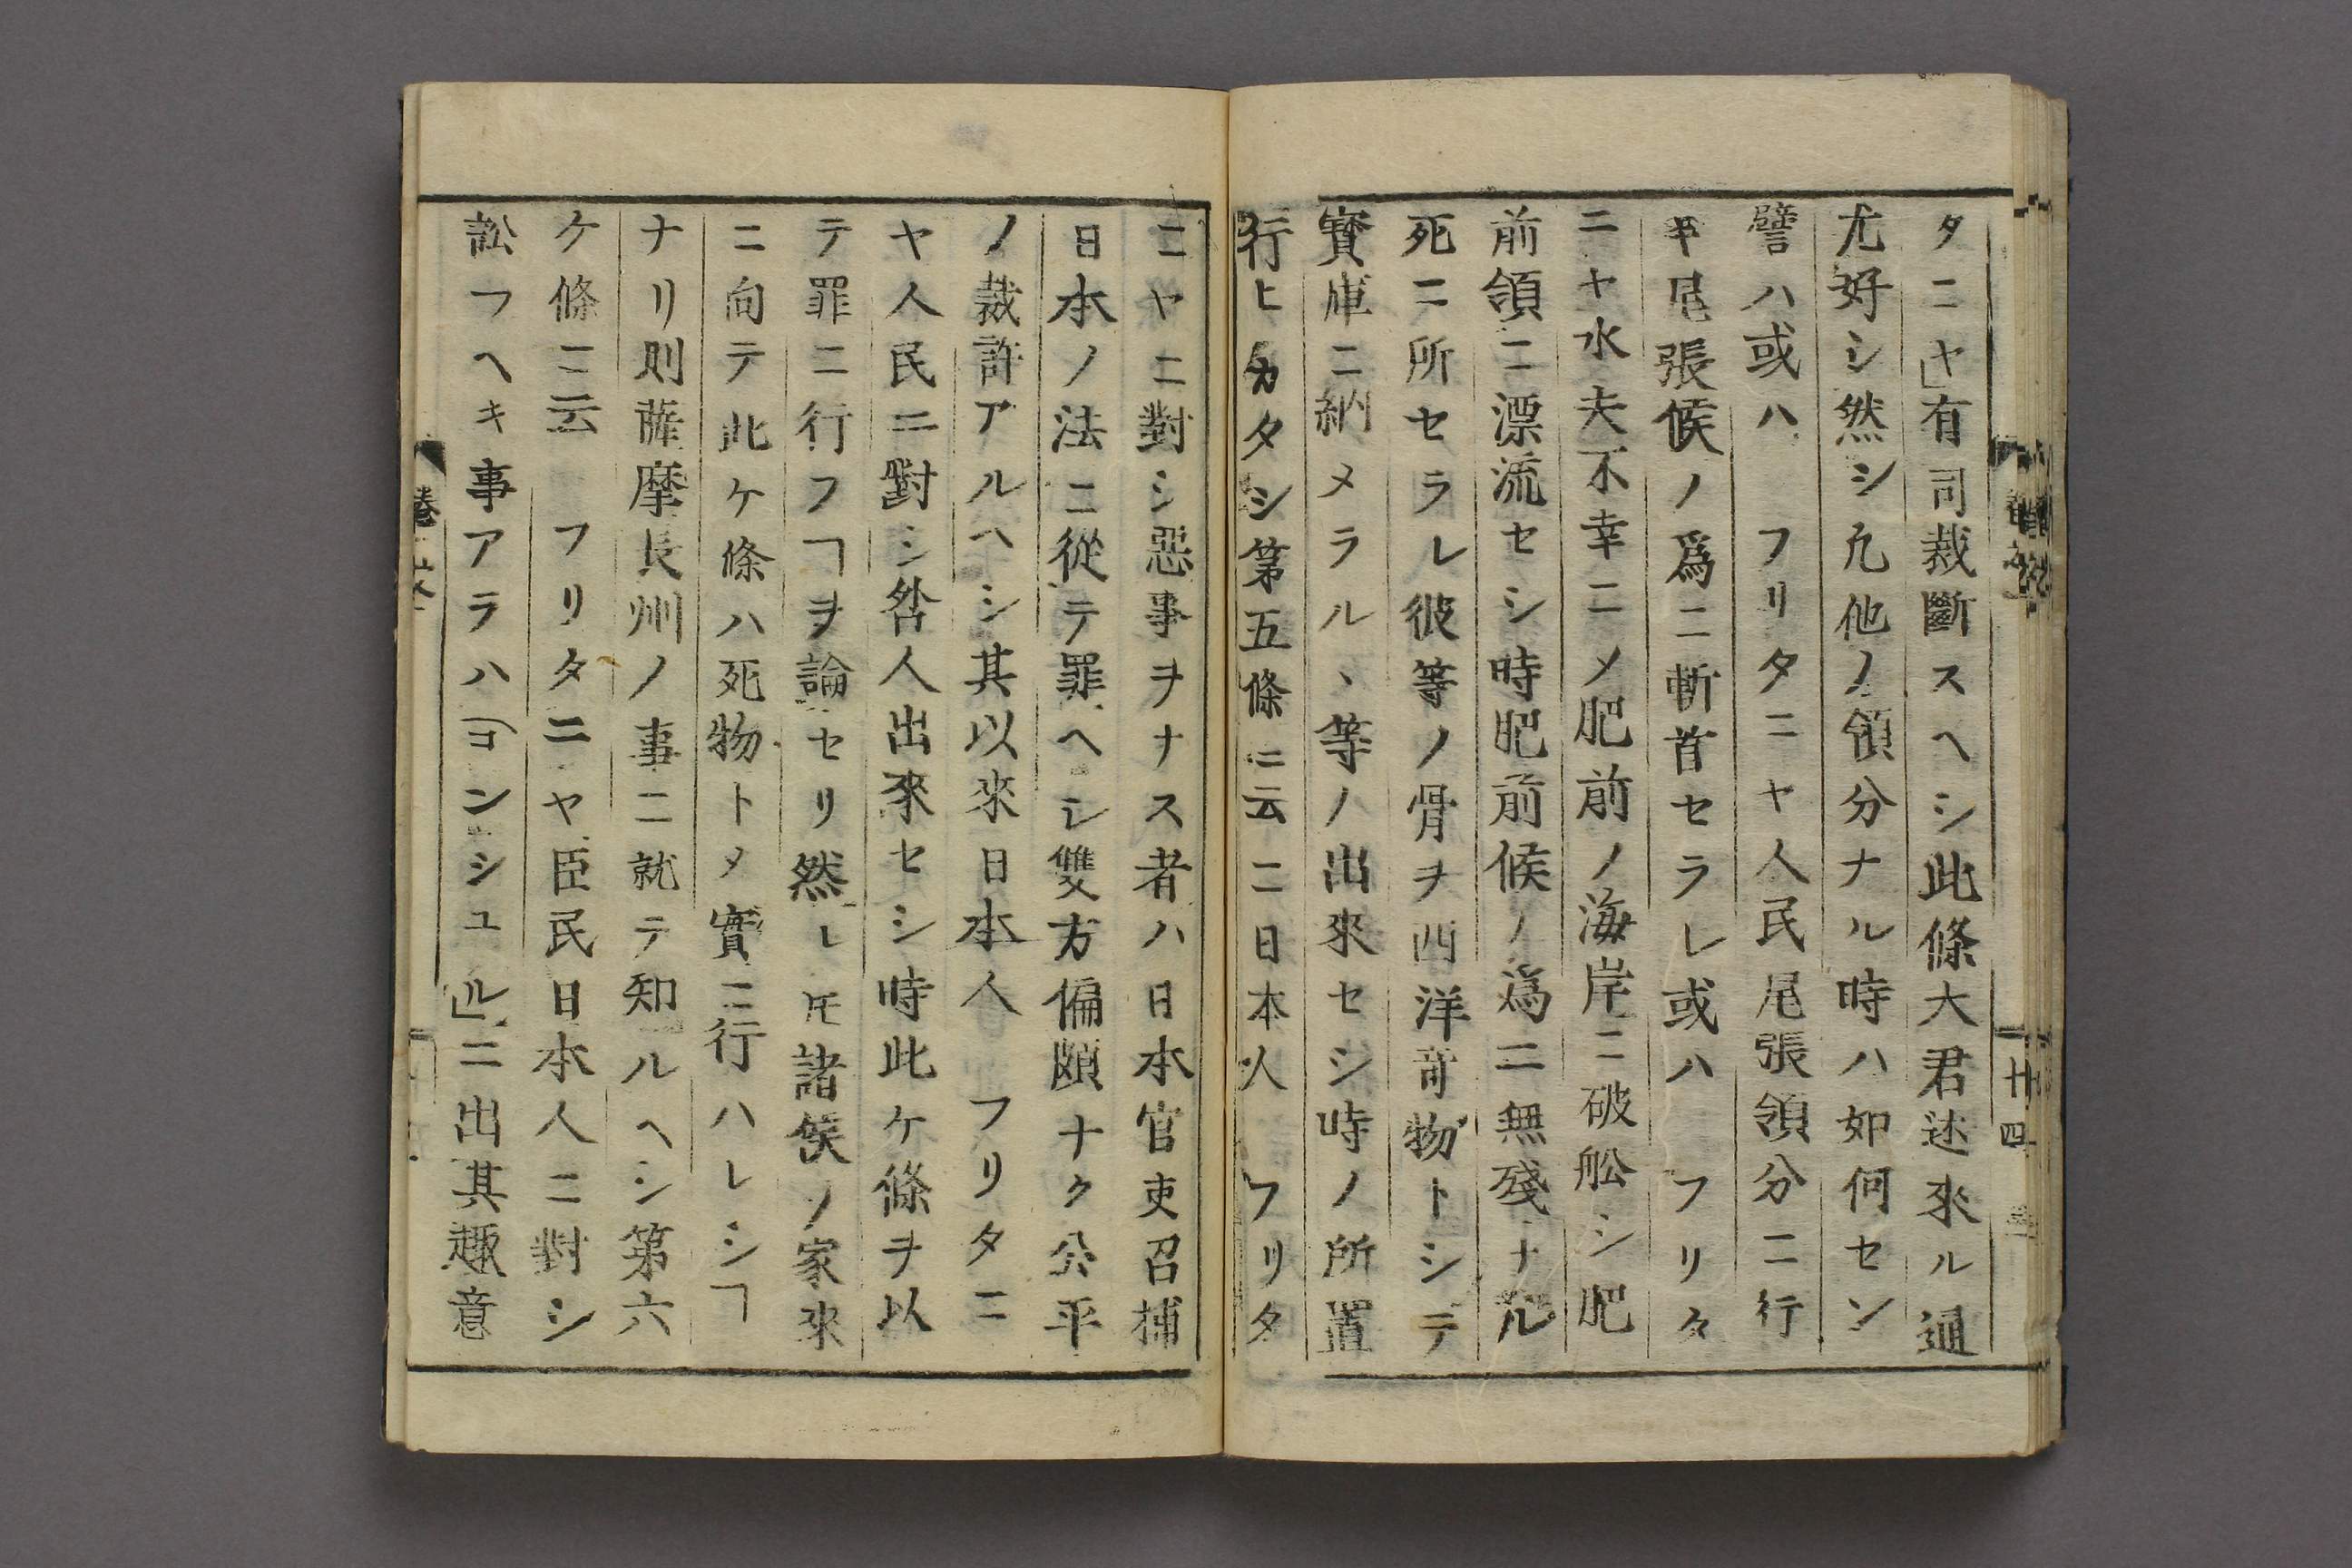 タニヤ」有司裁斷スヘシ此條大君述來ル通
尤好シ然シ凢他ノ領分ナル時ハ如何セン
譬ハ或ハ フリタニヤ人民尾張領分ニ行
キ尾張候ノ爲ニ斬首セラレ或ハ フリタ
ニヤ水夫不幸ニメ肥前ノ海岸ニ破舩シ肥
前領ニ漂流セシ時肥前候ノ爲ニ無殘ナル
死ニ所セラレ彼等ノ骨ヲ西洋竒物トシテ
寳庫ニ納メラルヽ等ノ出來セシ時ノ所置
行ヒカタシ第五條ニ云ニ日本人 フリタ
廿四
ニヤニ對シ惡事ヲナス者ハ日本官吏召捕
日本ノ法ニ從テ罪ヘシ雙方偏頗ナク公平
ノ裁許アルヘシ其以來日本人 フリタニ
ヤ人民ニ對シ咎人出來セシ時此ケ條ヲ以
テ罪ニ行フヿヲ論セリ然レ𪜈諸候ノ家來
ニ向テ此ケ條ハ死物トメ實ニ行ハレシヿ
ナリ則薩摩長州ノ事ニ就テ知ルヘシ第六
ケ條ニ云 フリタニヤ臣民日本人ニ對シ
訟フヘキ事アラハ「コンシュル」ニ出其趣意
卷